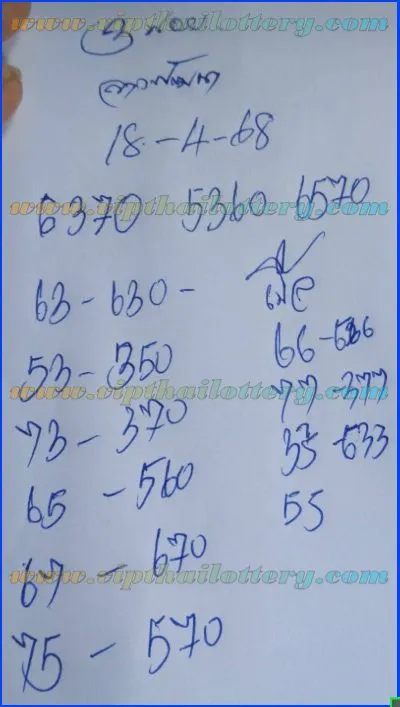 www.vipthailottery.com
ลาวพัฒนา
18-4-68
6370 5360 6570
www.vipthailottery.com
63-630-
53-350
73-370
65-560
67-670
75-570
เบิ้ล
66-566
77-377
33-633
55
www.vipthailottery.com
www.vipthailottery.com